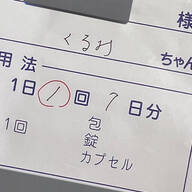 様
くるみ ちゃん
用法
1日 1 回 7 日分
1回 包
錠
カプセル